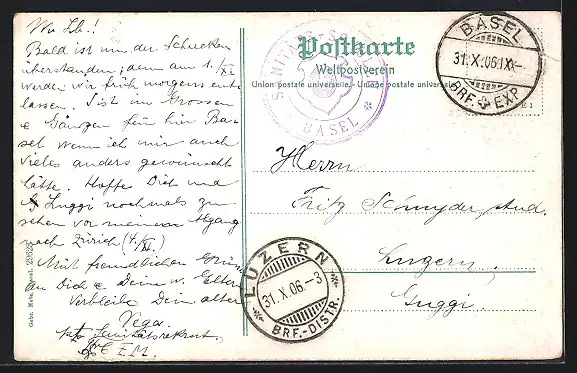 M. Lb.!
Bald ist nun der Schrecken
überstanden, denn am 1./XI
werden wir früh morgens ent-
lassen. Ist im Grossen
& Ganzen fürs hier Ba-
sel wenn ich mir auch
vieles anders gewünscht
hätte. Hoffe Dich und
Guggi nochmals zu
sehen vor meinem Abgang
nach Zürich (4./XI)
Mit freundlichen Grüssen
an Dich & Deine w. Eltern
Verbleibe Dein alter
Vega
Sanitätsrekrut
Gebr. Metz, Basel. 29628
Postkarte
Weltpostverein
Union postale universelle. - Unione postale universale
BASEL
BASEL
31.X.06.IX-
BRF. EXP.
Herrn
Fritz Schnyder, stud.
Luzern
Guggi.
LUZERN
31.X.06.-3
BRF.-DISTR.